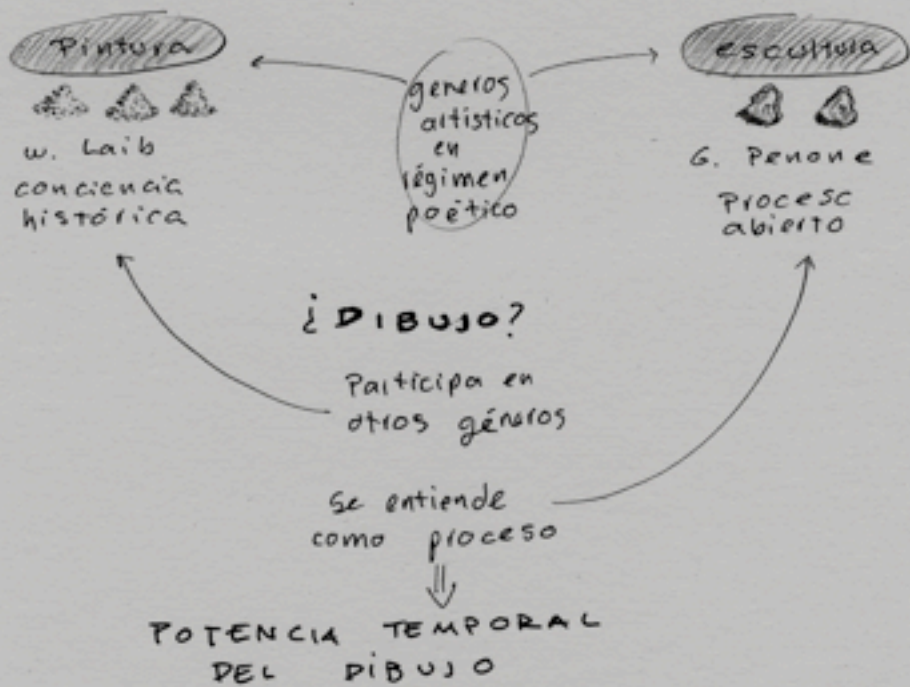 Pintura
W. Laib
conciencia
histórica
géneros
artísticos
en
régimen
poético
escultura
G. Penone
Proceso
abierto
¿DIBUJO?
Participa en
otros géneros
Se entiende
como proceso
POTENCIA TEMPORAL
DEL DIBUJO